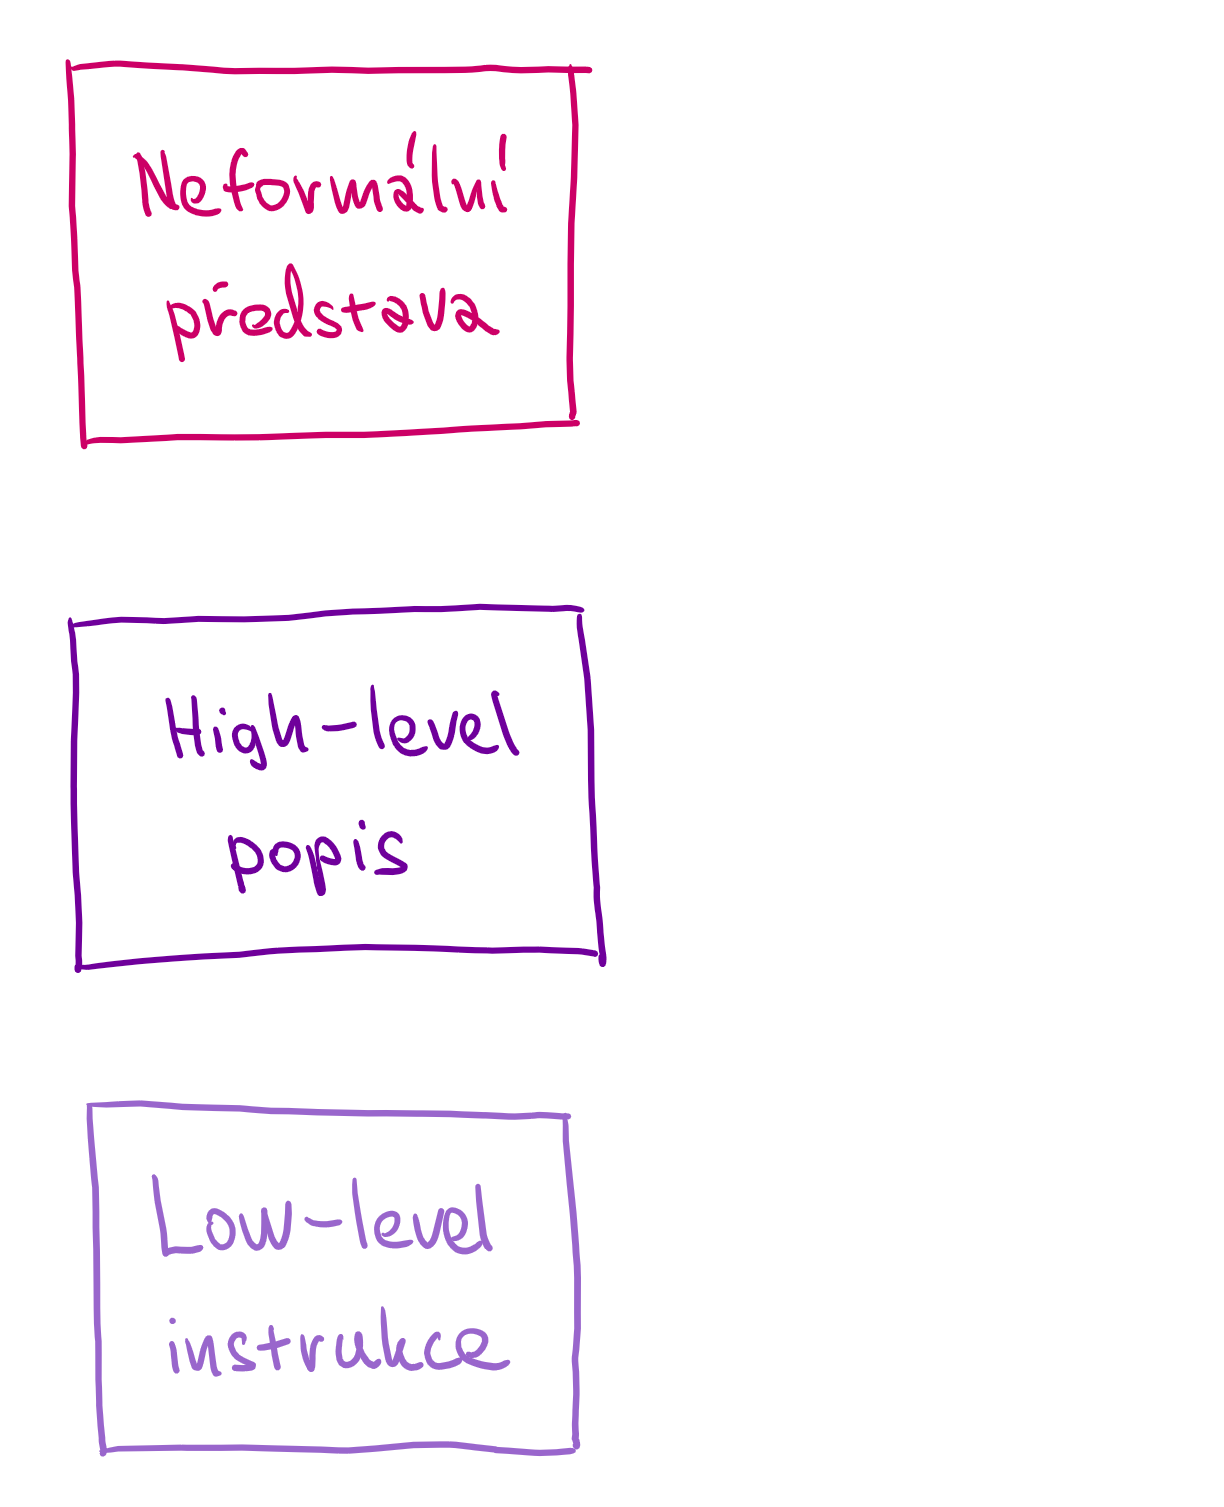 Neformální
představa
High-level
popis
Low-level
instrukce